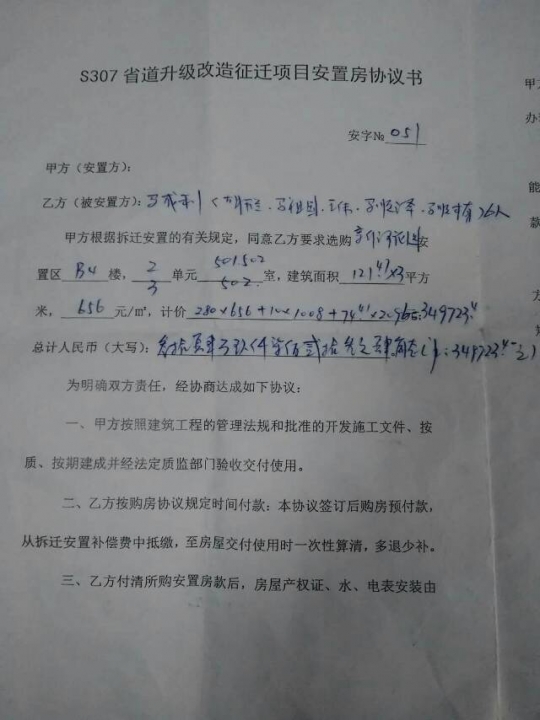 S307 省道升级改造征迁项目安置房协议书
安字№ 051
甲方（安置方）：
乙方（被安置方）：
甲方根据拆迁安置的有关规定，同意乙方要求选购 安
置区 B4 楼， 2 3 单元 501 502 502 室，建筑面积 121.41×3 平方
米， 656 元/㎡，计价 280×656+10×1008+74.41×2096=349723.4
总计人民币（大写）：叁拾肆万玖仟柒佰贰拾叁元肆角 （¥：349723.4 元）
为明确双方责任，经协商达成如下协议：
一、甲方按照建筑工程的管理法规和批准的开发施工文件、按
质、按期建成并经法定质监部门验收交付使用。
二、乙方按购房协议规定时间付款：本协议签订后购房预付款，
从拆迁安置补偿费中抵缴，至房屋交付使用时一次性算清，多退少补。
三、乙方付清所购安置房款后，房屋产权证、水、电表安装由
甲
办
能
款